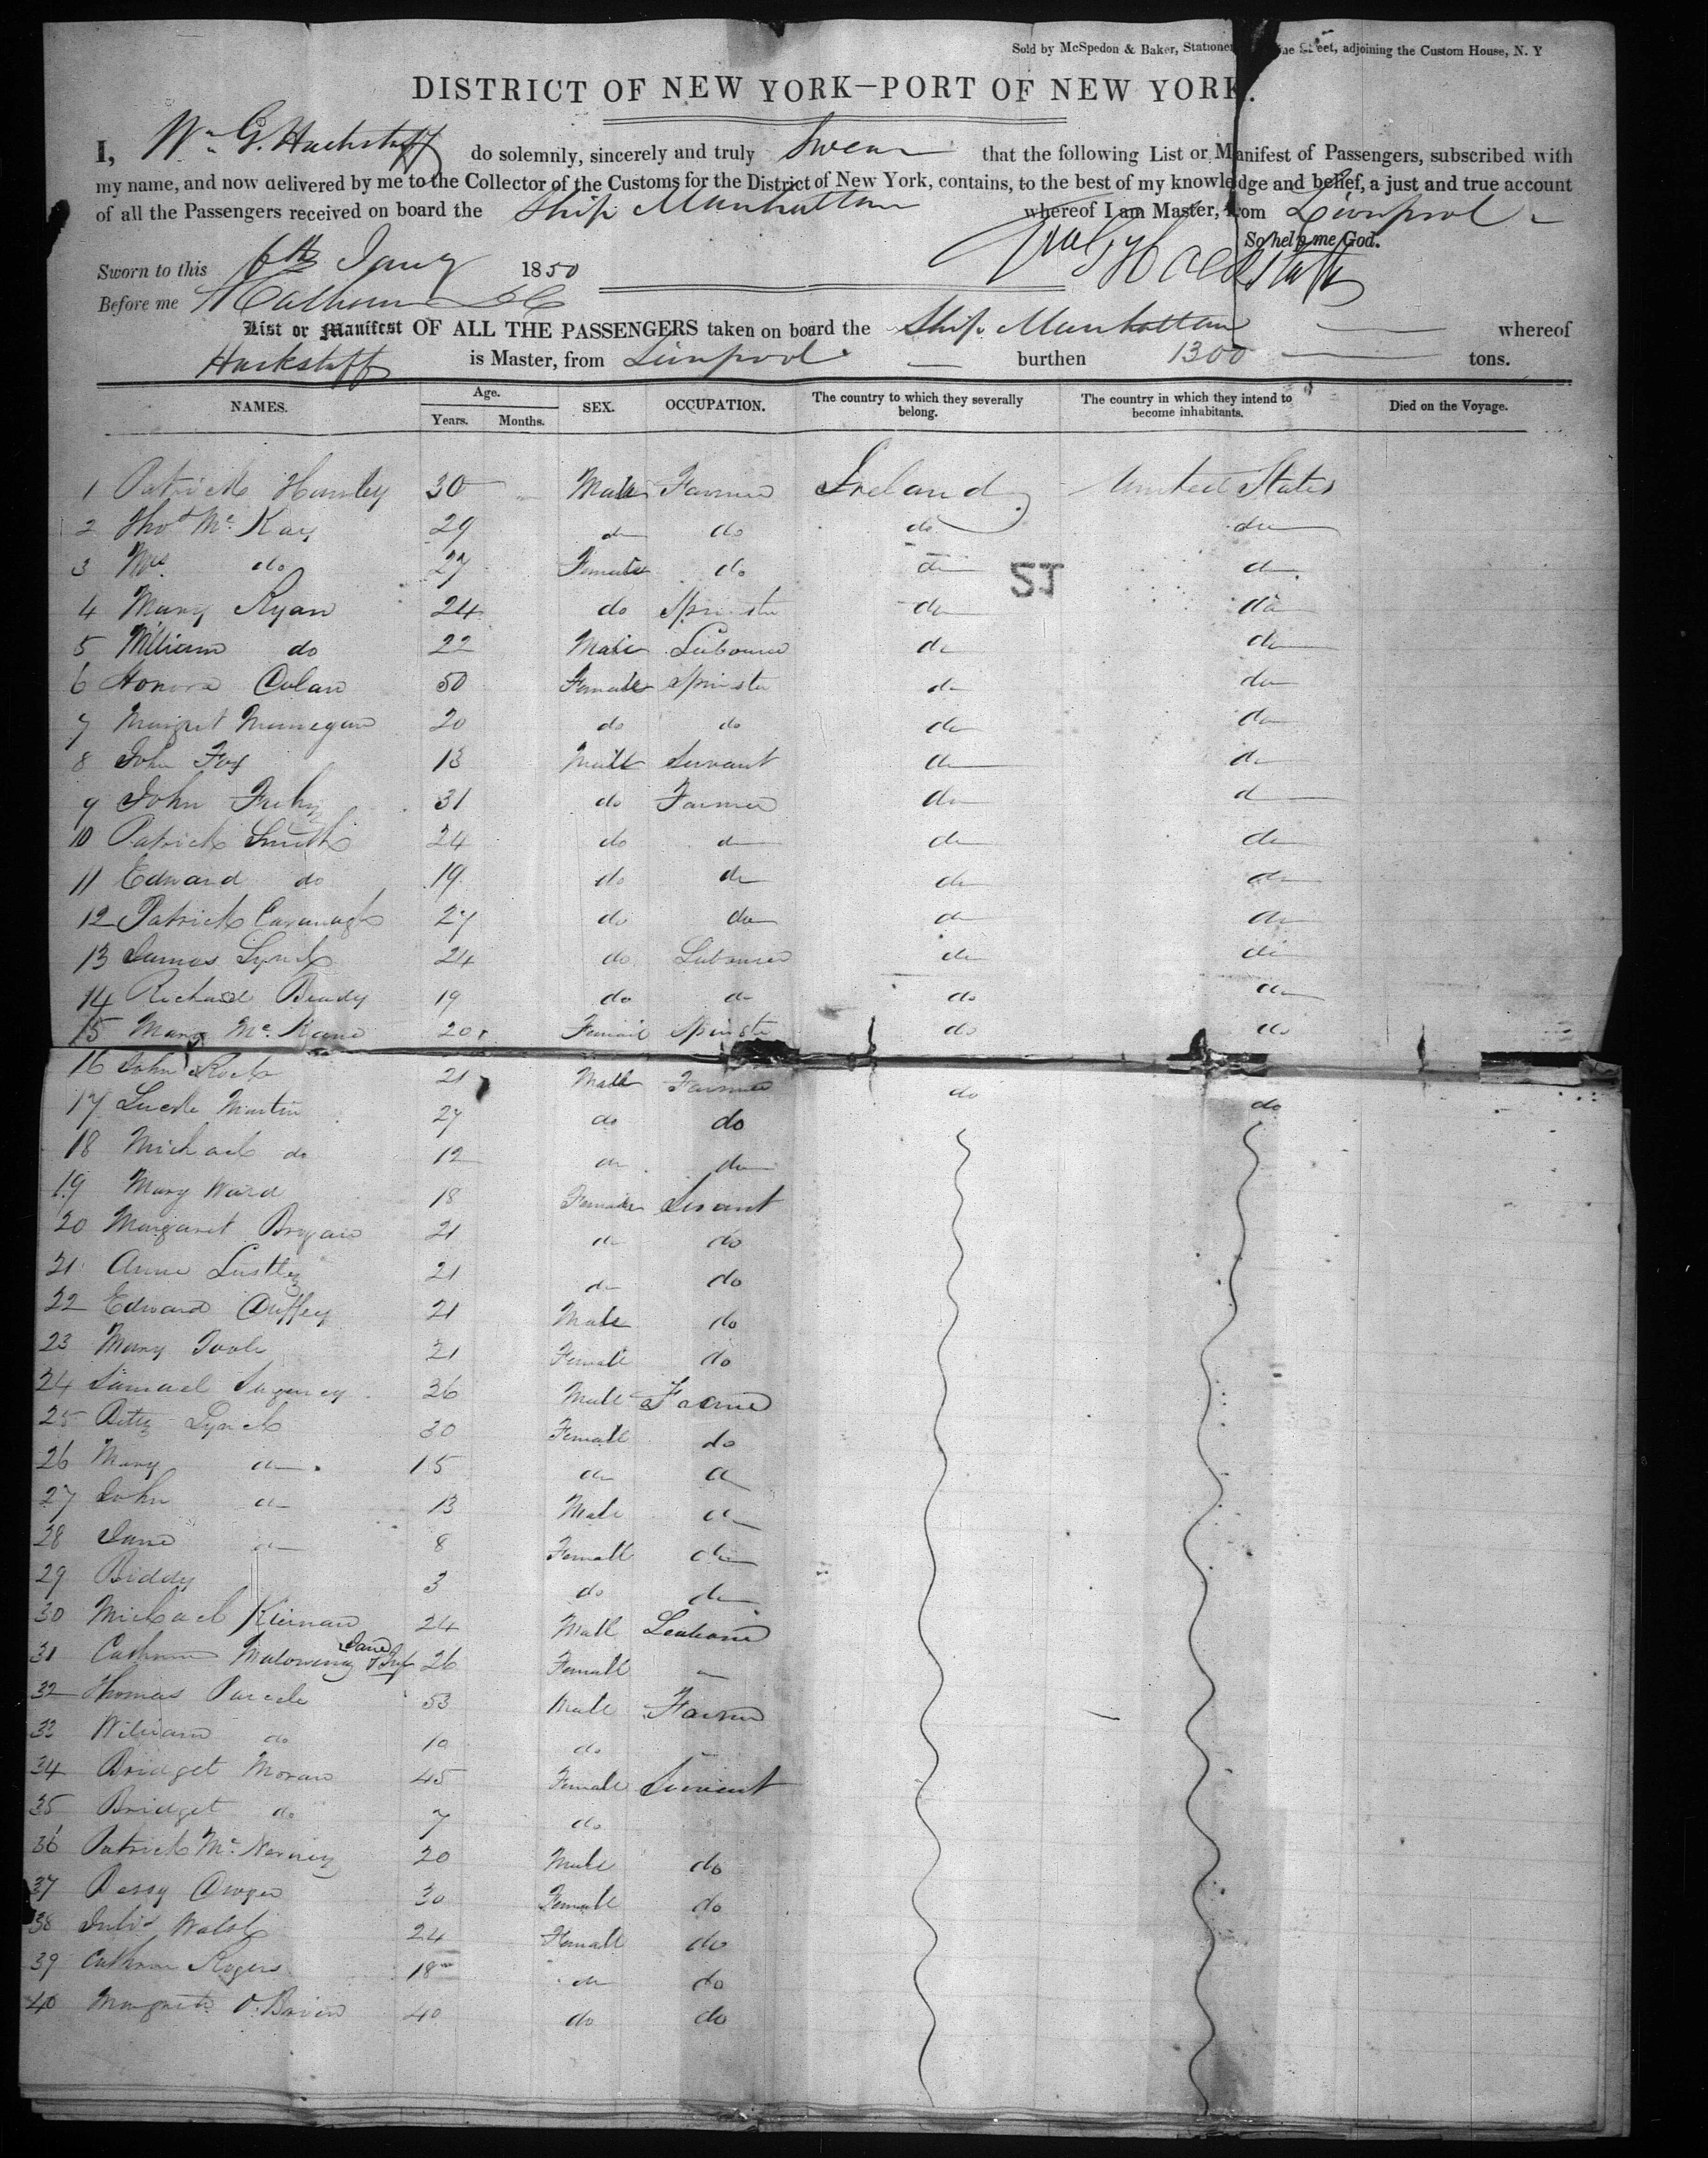 Sold by McSpedon & Baker, Stationers ne Street, adjoining the Custom House, N. Y
DISTRICT OF NEW YORK—PORT OF NEW YORK.
I, Wm G. Hackstaff do solemnly, sincerely and truly Swear that the following List or Manifest of Passengers, subscribed with
my name, and now delivered by me to the Collector of the Customs for the District of New York, contains, to the best of my knowledge and belief, a just and true account
of all the Passengers received on board the Ship Manhattan whereof I am Master, from Liverpool
So help me God.
Sworn to this 6th Jany 1850 Wm G Hackstaff
Before me Calhoun
List or Manifest OF ALL THE PASSENGERS taken on board the Ship Manhattan whereof
Hackstaff is Master, from Liverpool burthen 1300 tons.
NAMES. Age. Years. Months. SEX. OCCUPATION. The country to which they severally belong. The country in which they intend to become inhabitants. Died on the Voyage.
1 Patrick Hanley 30 Male Farmer Ireland United States
2 Thos McKay 29 do do do do
3 Mrs do 27 Female do do do
21
4 Mary Ryan 24 do Spinster do do
5 William do 22 Male Labourer do do
6 Honora Colan 50 Female Spinster do do
7 Margret Mannegan 20 do do do do
8 John Fox 13 Male Servant do do
9 John Fahy 31 do Farmer do do
10 Patrick Smith 24 do do do do
11 Edward do 19 do do do do
12 Patrick Cavanagh 27 do do do do
13 James Lynch 24 do Labourer do do
14 Richard Brady 19 do do do do
15 Mary McKane 20 Female Spinster do do
16 John Rock 21 Male Farmer do do
17 Martin 27 do do
18 Michael do 12 do do
19 Mary Ward 18 Female Servant
20 Margaret Bryan 21 do do
21 Anne 21 do do
22 Edward Duffey 21 Male do
23 Mary Toole 21 Female do
24 Samuel 26 Male Farmer
25 Betty Lynch 30 Female do
26 Mary do 15 do do
27 John do 13 Male do
28 Jane do 8 Female do
29 Biddy 3 do do
30 Michael Kiernan 24 Male Labourer
31 Cathrine Jane & Inf 26 Female
32 Thomas 53 Male Farmer
33 William do 10 do
34 Bridget Moran 45 Female Servant
35 Bridget do 7 do
36 Patrick McNerney 20 Male do
37 Bessy Dwyer 30 Female do
38 Julia Walsh 24 Female do
39 Cathrine Rogers 18 do do
40 Margrate O'Brien 40 do do